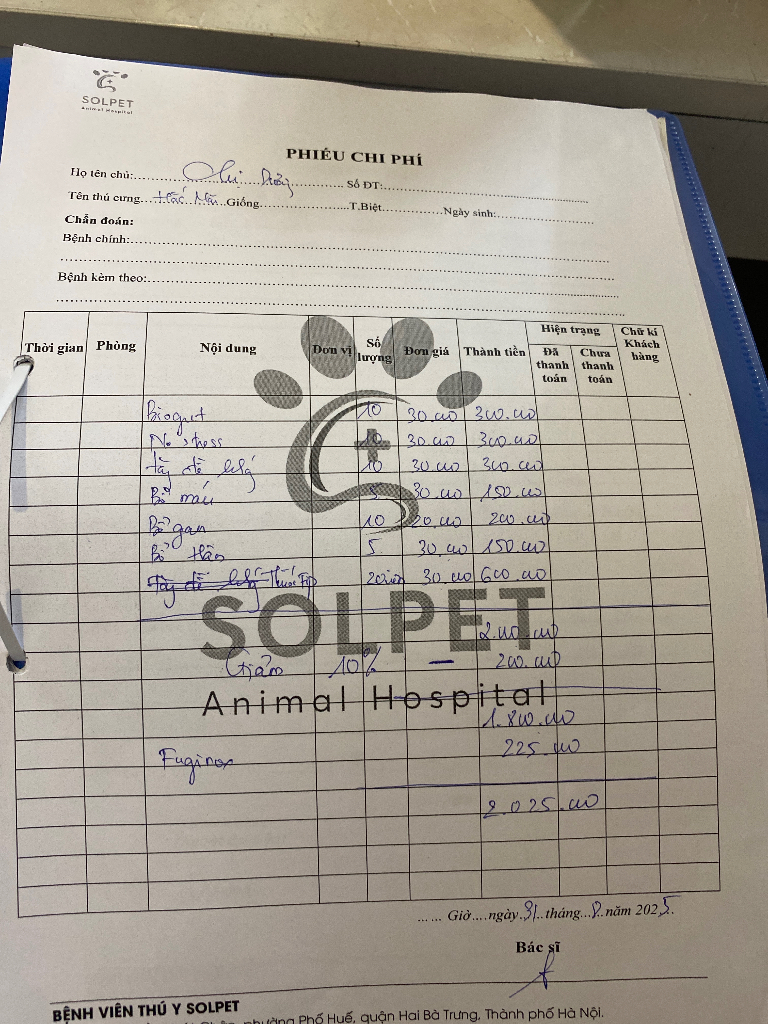 SOLPET
Animal Hospital
PHIẾU CHI PHÍ
Họ tên chủ: Chị Số ĐT:
Tên thú cưng Giống T.Biệt Ngày sinh:
Chẩn đoán:
Bệnh chính:
Bệnh kèm theo:
Thời gian Phòng Nội dung Đơn vị Số lượng Đơn giá Thành tiền Hiện trạng Đã thanh toán Chưa thanh toán Chữ kí Khách hàng
Biogut 10 30.000 300.000
No stress 10 30.000 300.000
Tăng đề kháng 10 30.000 300.000
Bổ máu 5 30.000 150.000
Bổ gan 10 20.000 200.000
Bổ thận 5 30.000 150.000
Thuốc 20 viên 30.000 600.000
2.000.000
Giảm 10% – 200.000
SOLPET
Animal Hospital
1.800.000
Fuginox 225.000
2.025.000
Giờ ngày 31 tháng 8 năm 2025
Bác sĩ
BỆNH VIÊN THÚ Y SOLPET
phường Phố Huế, quận Hai Bà Trưng, Thành phố Hà Nội.